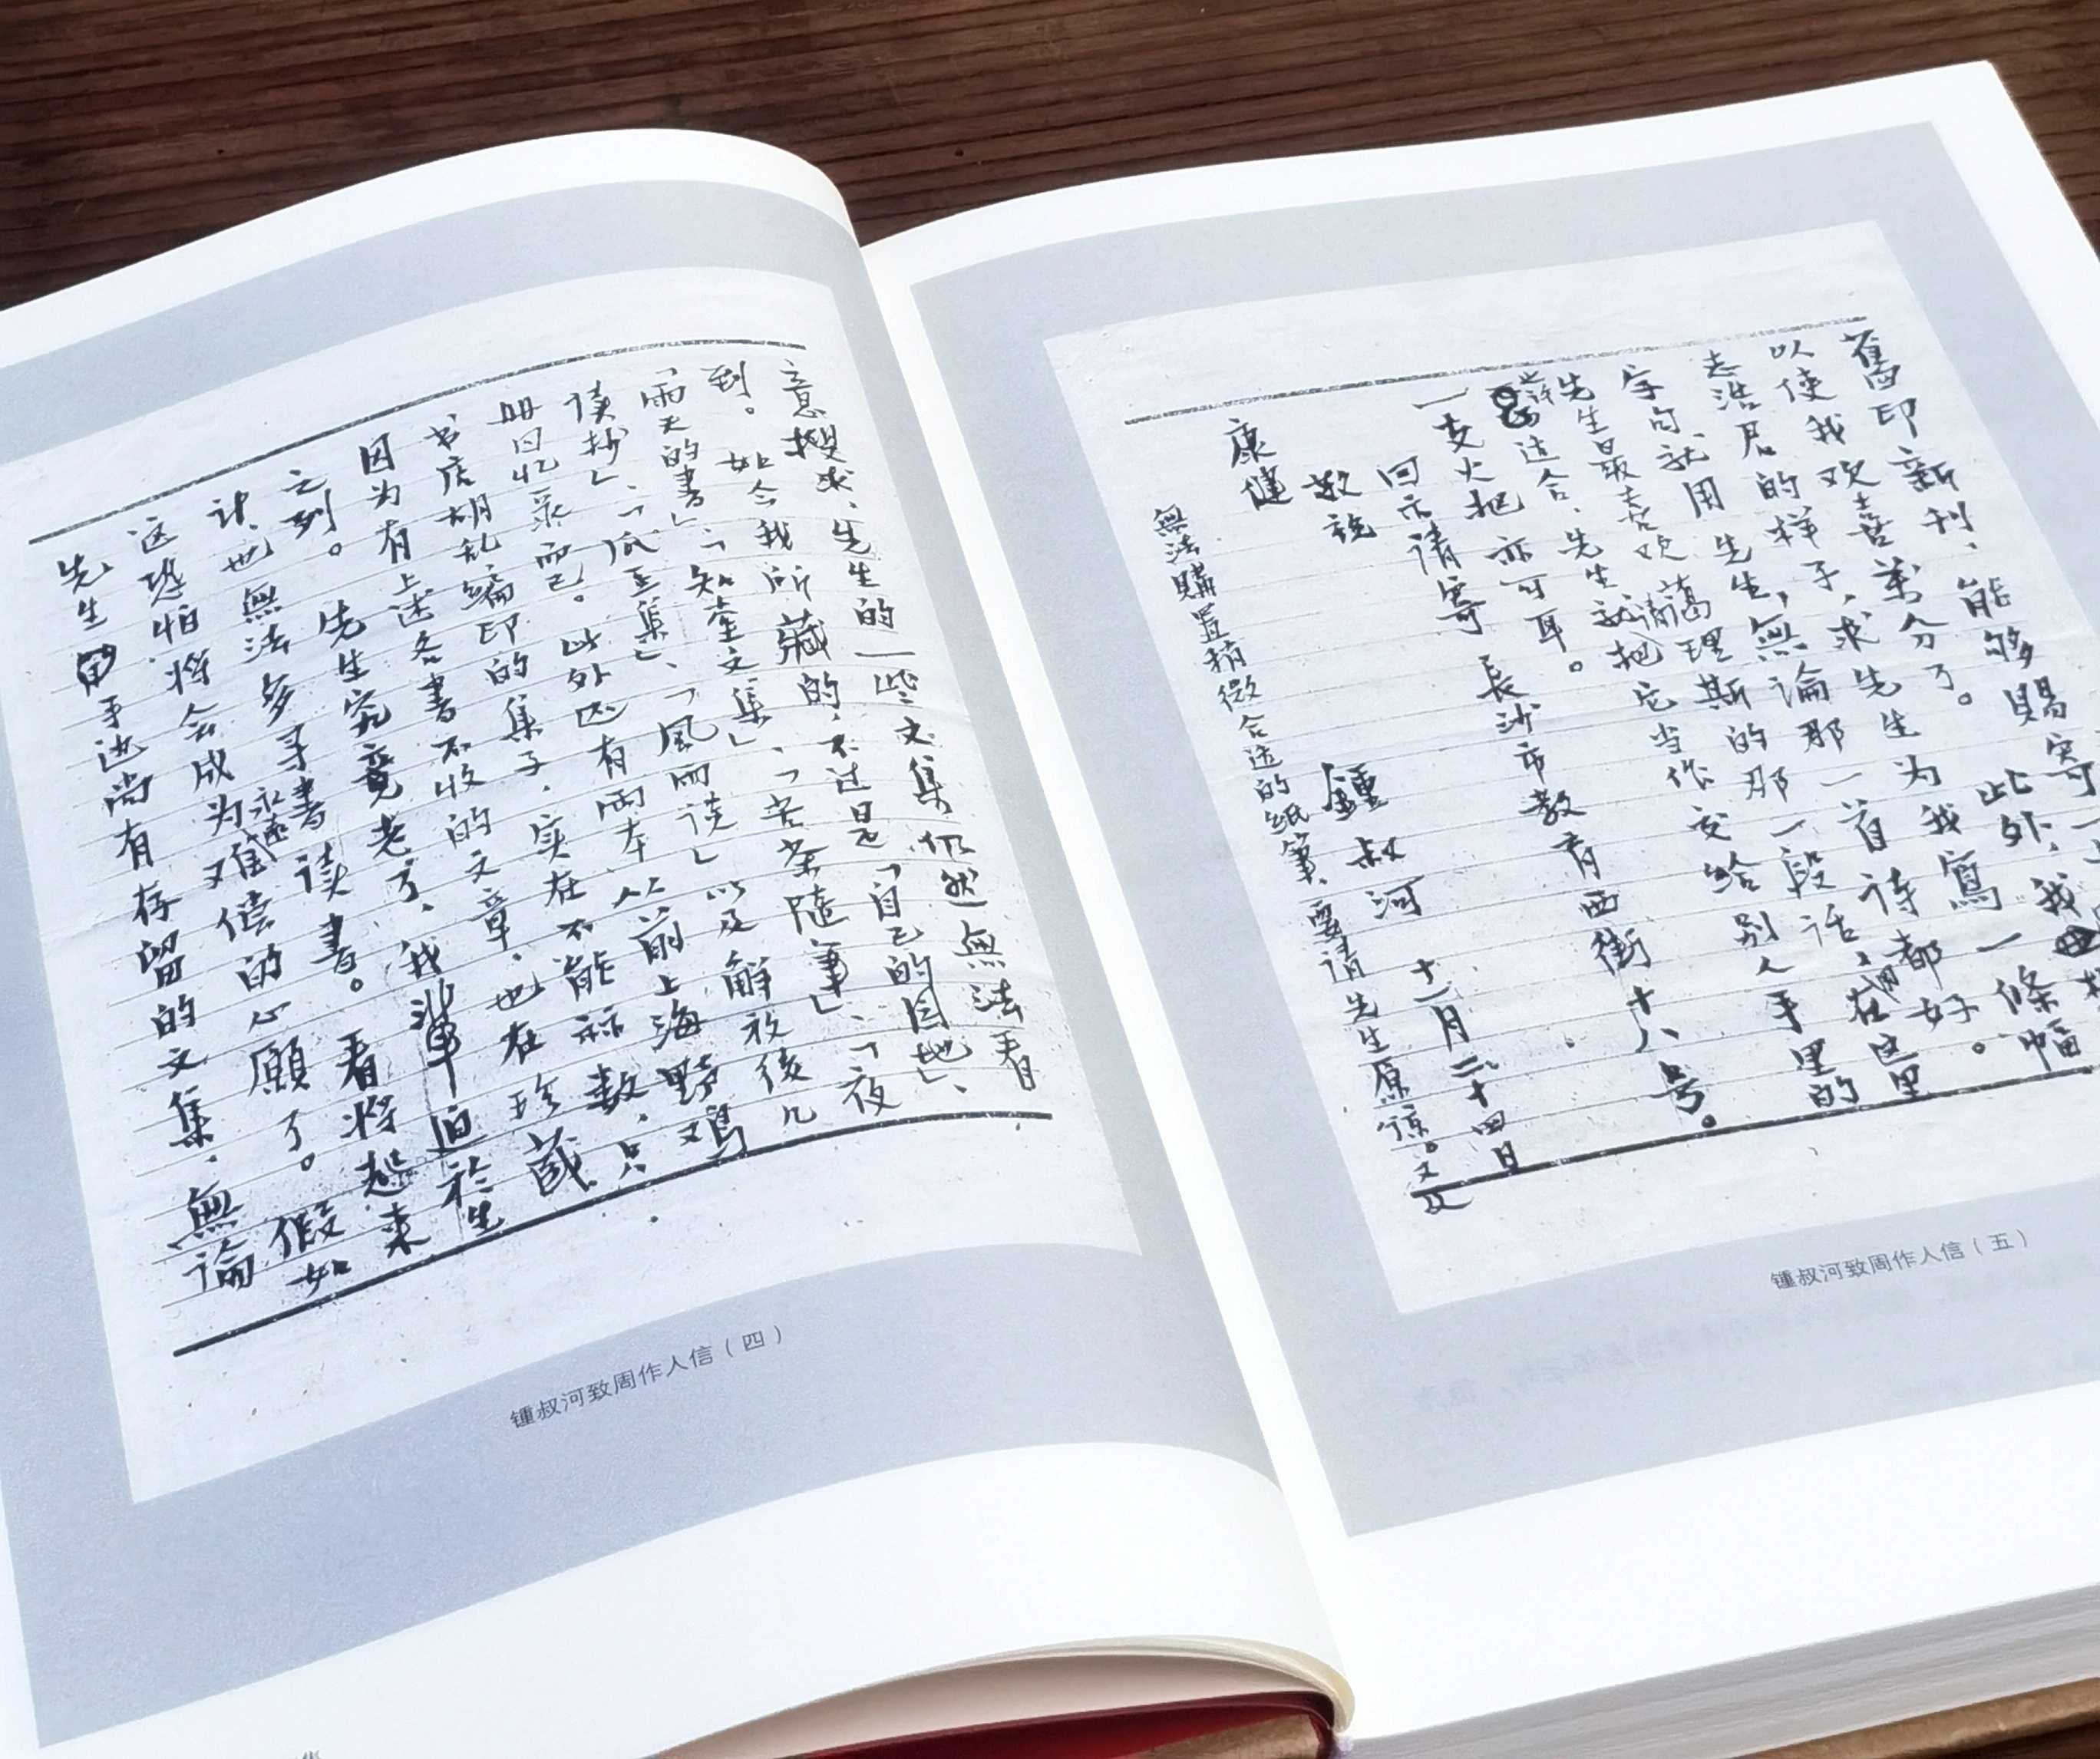 意搜求，先生的一些文集仍然無法看
到。如今我所藏的，不过是「自己的园地」、
「雨天的書」、「知堂文集」、「苦茶隨筆」、「夜
读抄」、「瓜豆集」、「風雨谈」以及解放後几
册回忆录而已。此外还有兩本从前上海野鸡
书店胡乱编印的集子，实在不能称数，只
因为有上述各書不收的文章，也在珍藏
之列。先生究竟老了，我輩迫於生
计，也無法多寻書读書。看将起来
这恐怕将会成为永远难偿的心願了。假如
先生手边尚有存留的文集，無論
锺叔河致周作人信（四）
舊印新刊，能够賜寄一
以使我欢喜萬分了。此外，我
志浩君的样子，求先生为我寫一條幅
字句就用先生，無論那一首诗都好。
先生最喜欢蔼理斯的那一段话，在这里
也许适合。先生就请把它当作交给别人手里的
一支火把亦可耳。
回示请寄 長沙市教育西街十八号。
敬祝
康健
鍾叔河 十一月二十四日
無法購置稍微合适的纸筆，要请先生原谅。又及
锺叔河致周作人信（五）
集